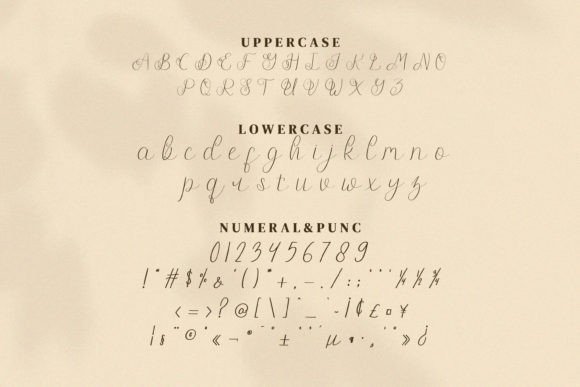 UPPERCASE
A B C D E F G H I J K L M N O
P Q R S T U V W X Y Z
LOWERCASE
a b c d e f g h i j k l m n o
p q r s t u v w x y z
NUMERAL&PUNC
0 1 2 3 4 5 6 7 8 9
! " # $ % & ' ( ) * + , - . / : ; ¼ ½ ¾
< = > ? @ [ \ ] ^ _ ` ~ ¡ ¢ £ ¤ ¥
¦ § ¨ © « ¬ ® ± µ ¶ · » ¿